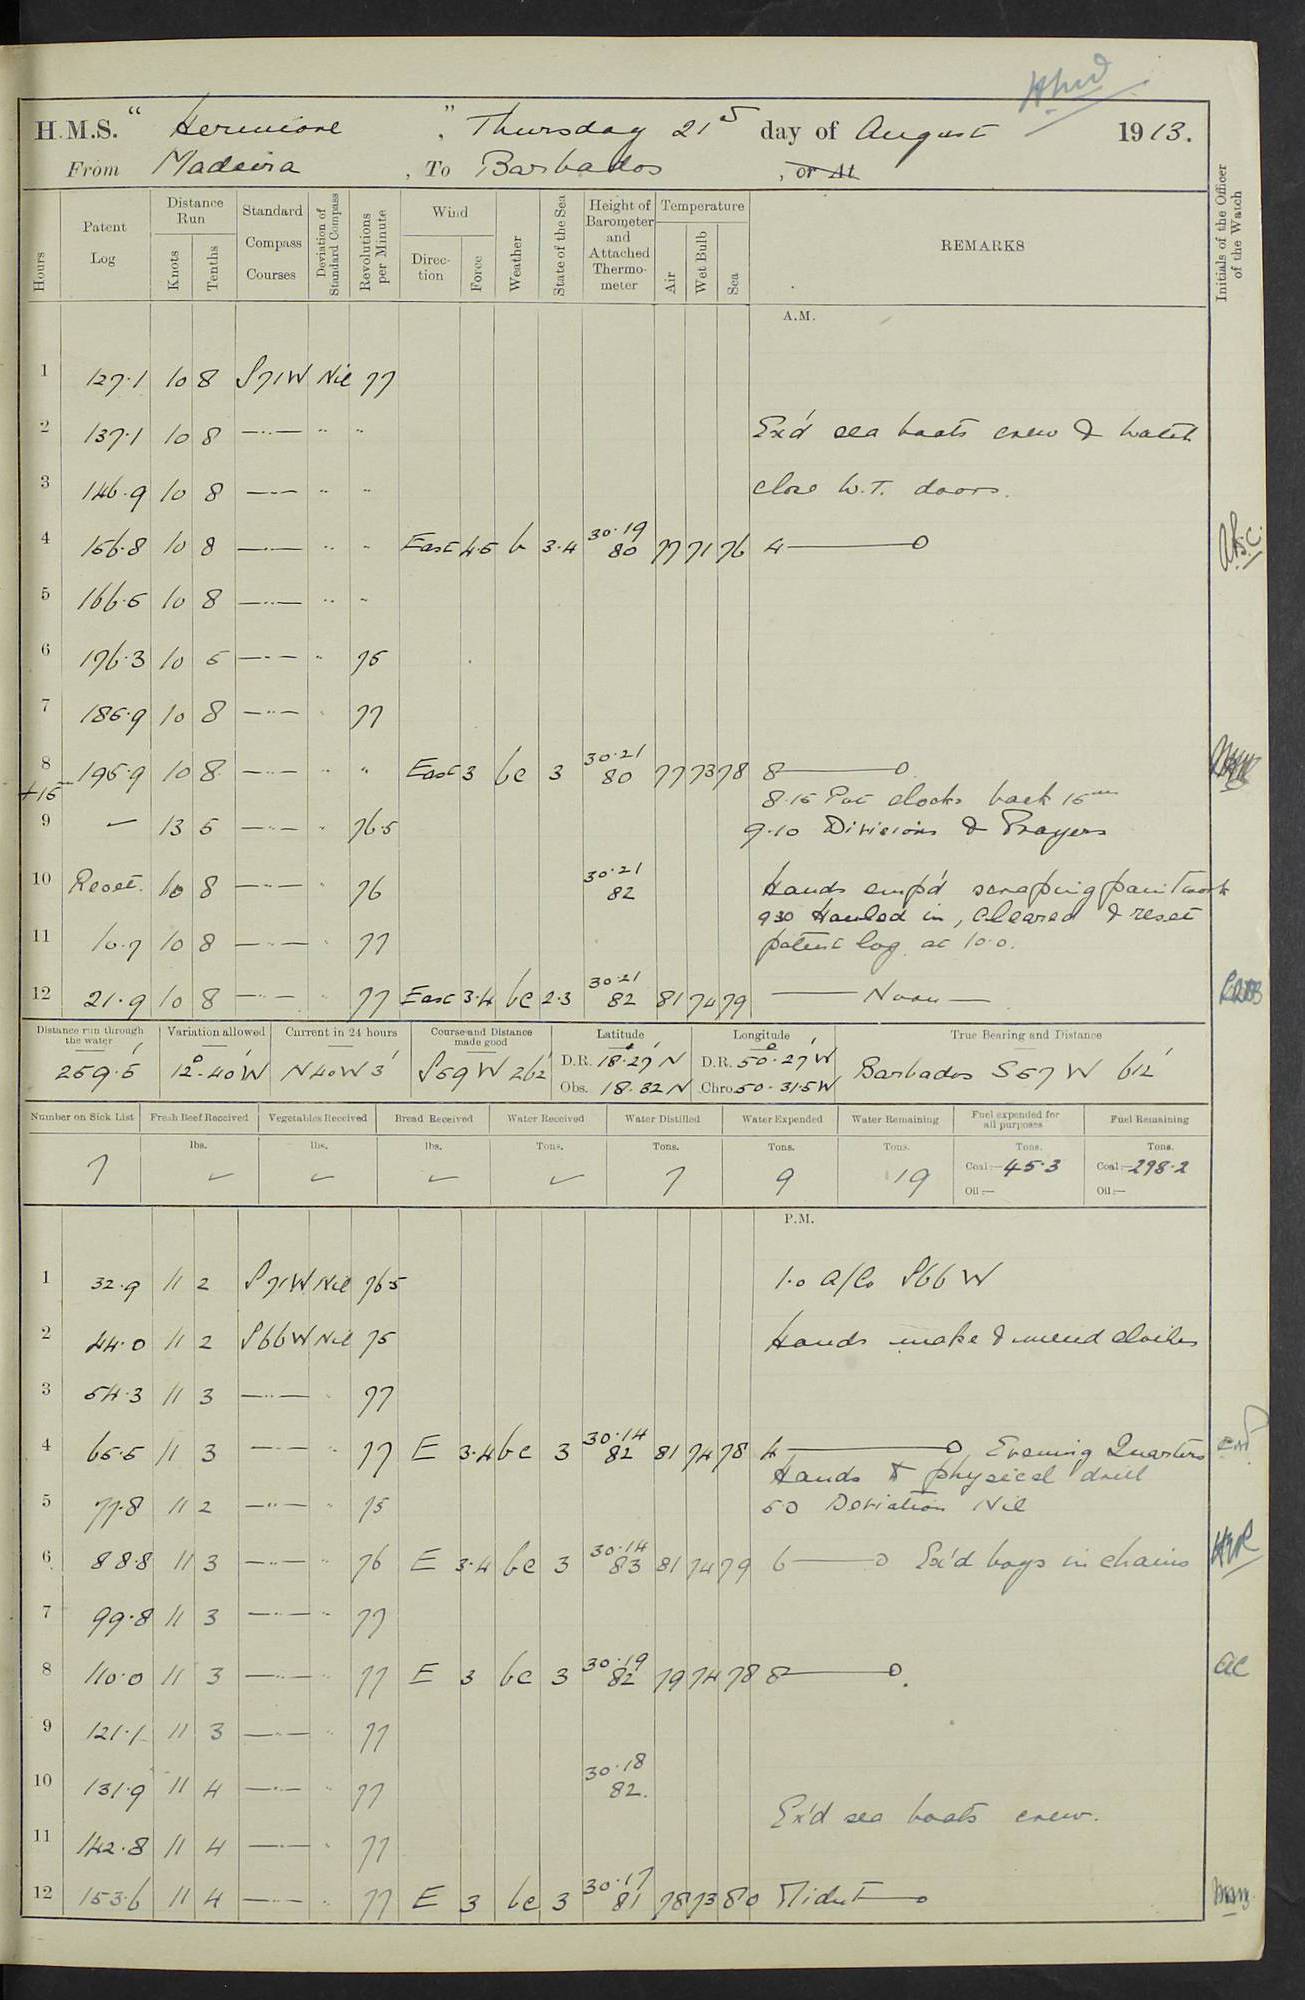 H.M.S. "Hermione", Thursday 21st day of August 1913.
From Madeira, To Barbados, or At
Hours
Patent Log
Distance Run
Knots
Tenths
Standard Compass Courses
Deviation of Standard Compass
Revolutions per Minute
Wind
Direction
Force
Weather
State of the Sea
Height of Barometer and Attached Thermometer
Temperature
Air
Wet Bulb
Sea
REMARKS
Initials of the Officer of the Watch
A.M.
1 127.1 10 8 S71W Nil 77
2 137.1 10 8 —"— " " Ex'd sea boats crew & watch
3 146.9 10 8 —"— " " close W.T. doors.
4 156.8 10 8 —"— " " East 4.5 b 3.4 30.19 80 77 71 76 4 ——— 0
5 166.5 10 8 —"— " "
6 176.3 10 5 —"— " 75
7 185.9 10 8 —"— " 77
8 195.9 10 8 —"— " " East 3 bc 3 30.21 80 77 73 78 8 ——— 0
+15 8.15 Put clocks back 15 min
9 ✓ 13 5 —"— " 76.5 9.10 Divisions & Prayers
10 Reset. 10 8 —"— " 76 30.21 82 Hands emp'd scraping paintwork
930 Hauled in, cleared & reset
11 10.7 10 8 —"— " 77 patent log at 10.0.
12 21.9 10 8 —"— " 77 East 3.4 bc 2.3 30.21 82 81 74 79 —— Noon ——
Distance run through the water
Variation allowed
Current in 24 hours
Course and Distance made good
Latitude
Longitude
True Bearing and Distance
259.5' 12°.40'W N40W 3' S69W 262' D.R. 18°.27'N D.R. 50°.27'W Barbados S57W 612'
Obs. 18.32N Chro. 50.31.5W
Number on Sick List
Fresh Beef Received
Vegetables Received
Bread Received
Water Received
Water Distilled
Water Expended
Water Remaining
Fuel expended for all purposes
Fuel Remaining
lbs. lbs. lbs. Tons. Tons. Tons. Tons. Tons. Tons.
7 ✓ ✓ ✓ ✓ 7 9 19 Coal:— 45.3 Coal:— 298.2
Oil:— Oil:—
P.M.
1 32.9 11 2 S71W Nil 76.5 1.0 A/Co S66W
2 44.0 11 2 S66W Nil 75 Hands make & mend clothes
3 54.3 11 3 —"— " 77
4 65.5 11 3 —"— " 77 E 3.4 bc 3 30.14 82 81 74 78 4 ——— 0 Evening Quarters
Hands to physical drill
5 77.8 11 2 —"— " 75 5.0 Deviation Nil
6 88.8 11 3 —"— " 76 E 3.4 bc 3 30.14 83 81 74 79 6 ——— 0 Ex'd boys in chains
7 99.8 11 3 —"— " 77
8 110.0 11 3 —"— " 77 E 3 bc 3 30.19 82 79 74 78 8 ——— 0. AC
9 121.1 11 3 —"— " 77
10 131.9 11 4 —"— " 77 30.18 82.
Ex'd sea boats crew.
11 142.8 11 4 —"— " 77
12 153.6 11 4 —"— " 77 E 3 bc 3 30.17 81 78 73 80 Midnt ——— 0